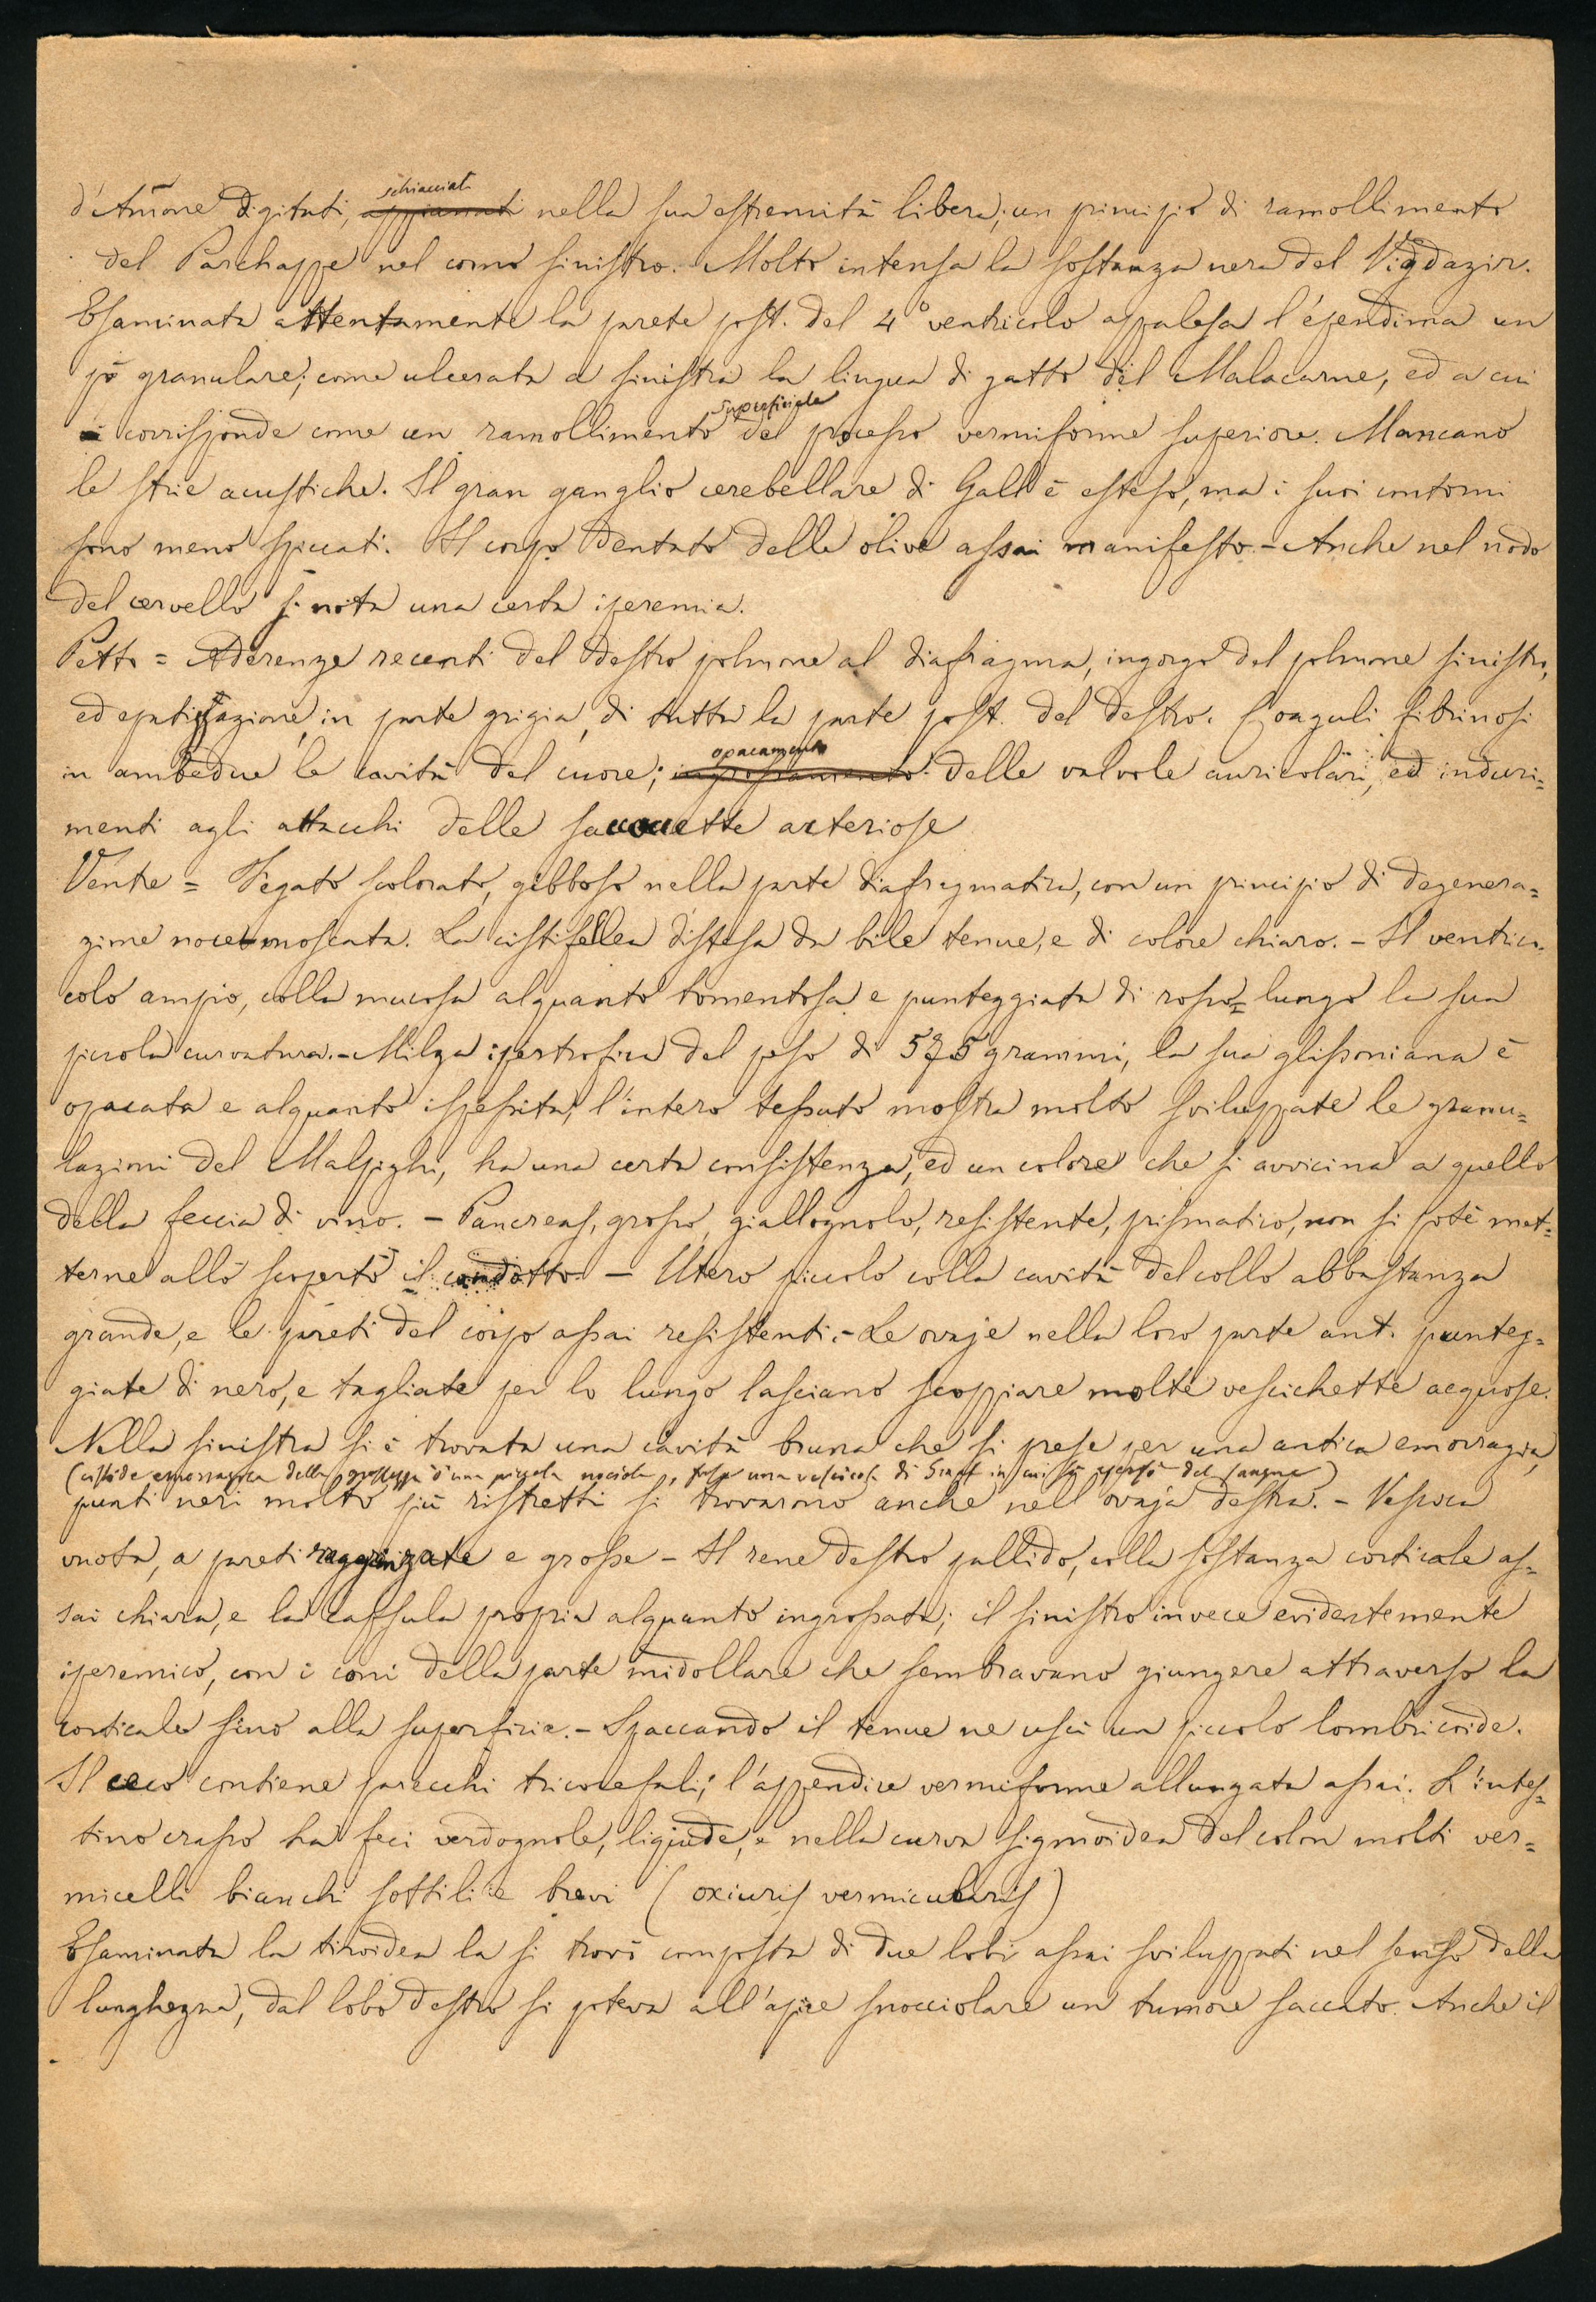 schiacciati
d'Ammone digitati, appianati nella sua estremità libera; un principio di ramollimento
del Parchappe nel corno sinistro. Molto intensa la sostanza nera del Vicqdazir.
Esaminata attentamente la parete post. del 4° ventricolo appalesa l'ependima un
pò granulare; come ulcerata a sinistra la lingua di gatto del Malacarne, ed a cui
superficiale
corrisponde come un ramollimento del processo vermiforme superiore. Mancano
le strie acustiche. Il gran ganglio cerebellare di Gall è esteso, ma i suoi contorni
sono meno spiccati. Il corpo dentato delle olive assai manifesto. - Anche nel nodo
del cervello si nota una certa iperemia.
Petto = Aderenze recenti del destro polmone al diafragma, ingorgo del polmone sinistro,
ed epatizzazione, in parte grigia, di tutta la parte post. del destro. Coaguli fibrinosi
opacamento
in ambedue le cavità del cuore; ingrossamento delle valvole auricolari, ed induri=
menti agli attacchi delle saccocette arteriose
Ventre = Fegato scolorato, gibboso nella parte diafragmatica, con un principio di degenera=
zione nocemoscata. La cistifellea distesa da bile tenue, e di colore chiaro. - Il ventri=
colo ampio, colla mucosa alquanto tomentosa e punteggiata di rosso lungo la sua
piccola curvatura. - Milza ipertrofica del peso di 575 grammi, la sua glissoniana è
opacata e alquanto ispessita; l'intero tessuto mostra molto sviluppate le granu=
lazioni del Malpighi, ha una certa consistenza, ed un colore che si avvicina a quello
della feccia di vino. - Pancreas, grosso, giallognolo, resistente, prismatico, non si potè met=
terne allo scoperto il condotto. - Utero piccolo colla cavità del collo abbastanza
grande, e le pareti del corpo assai resistenti. - Le ovaje nella loro parte ant. punteg=
giate di nero, e tagliate per lo lungo lasciano scoppiare molte vescichette acquose.
Nella sinistra si è trovata una cavità bruna che si prese per una antica emorragia,
(cistide emorragica della grossezza d'una piccola nociola, forse una vescicola di Graaf in cui si è sparso del sangue)
punti neri molto più ristretti si trovarono anche nell'ovaja destra. - Vescica
vuota, a pareti raggrinzate e grosse - Il rene destro pallido, colla sostanza corticale as=
sai chiara, e la capsula propria alquanto ingrossata; il sinistro invece evidentemente
iperemico, con i coni della parte midollare che sembravano giungere attraverso la
corticale sino alla superficie. - Spaccando il tenue ne uscì un piccolo lombricoide.
Il ceco contiene parecchi tricocefali; l'appendice vermiforme allungata assai. L'intes=
tino crasso ha feci verdognole, liquide, e nella curva sigmoidea del colon molti ver=
micelli bianchi sottili e brevi (oxiuris vermicularis)
Esaminata la tiroidea la si trovò composta di due lobi assai sviluppati nel senso della
lunghezza, dal lobo destro si poteva all'apice snocciolare un tumore saccato. Anche il